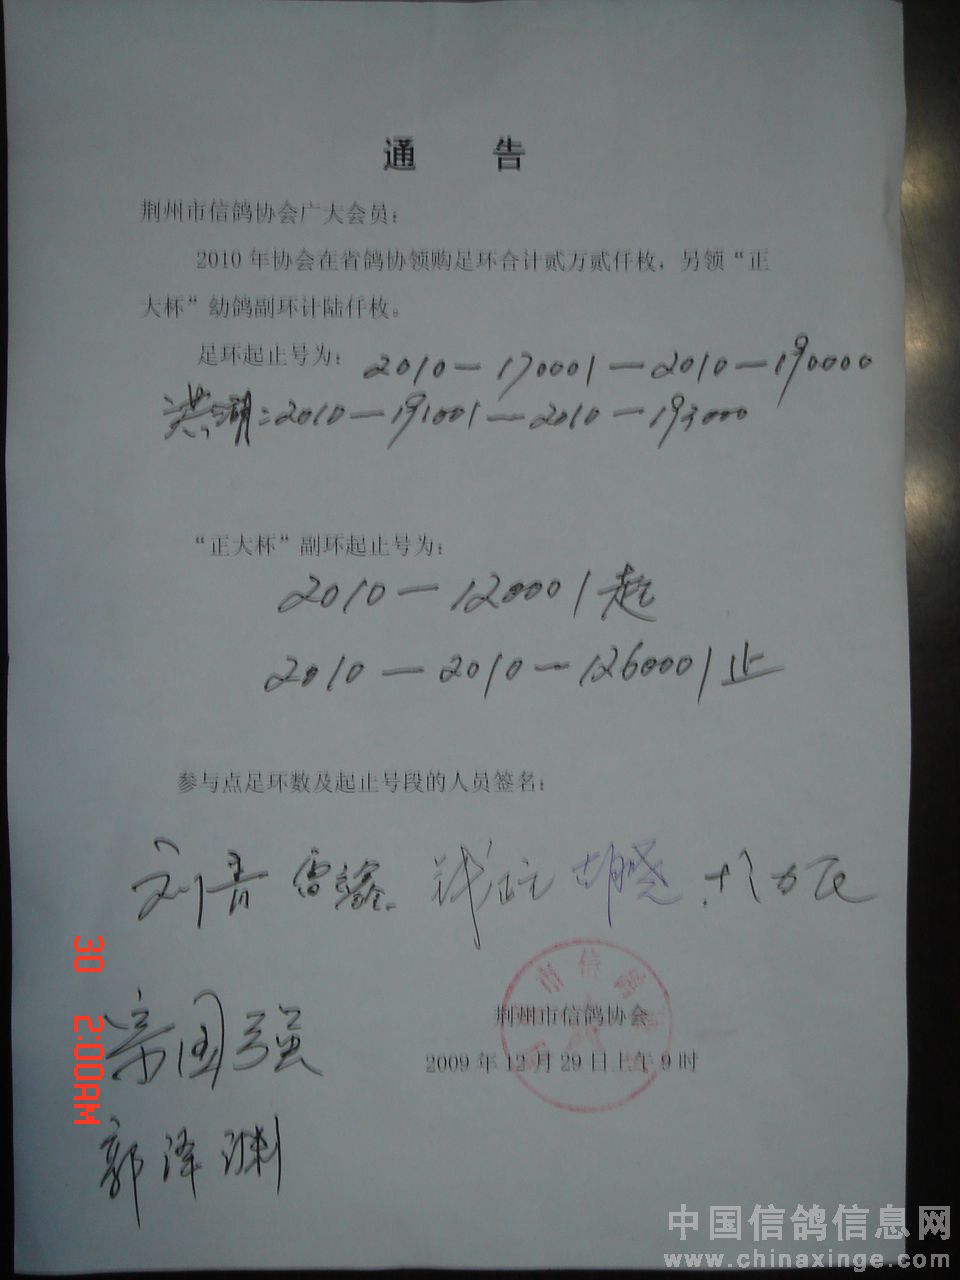 通 告
荆州市信鸽协会广大会员：
2010年协会在省鸽协领购足环合计贰万贰仟枚，另领“正
大杯”幼鸽副环计陆仟枚。
足环起止号为：2010—170001—2010—190000
洪湖：2010—191001—2010—193000
“正大杯”副环起止号为：
2010—120001起
2010—2010—1260001止
参与点足环数及起止号段的人员签名：
刘青 雷鑫 胡晓
国强
郭泽渊
市信鸽
荆州市信鸽协会
2009年12月29日上午9时
30 2:00AM
中国信鸽信息网
www.chinaxinge.com